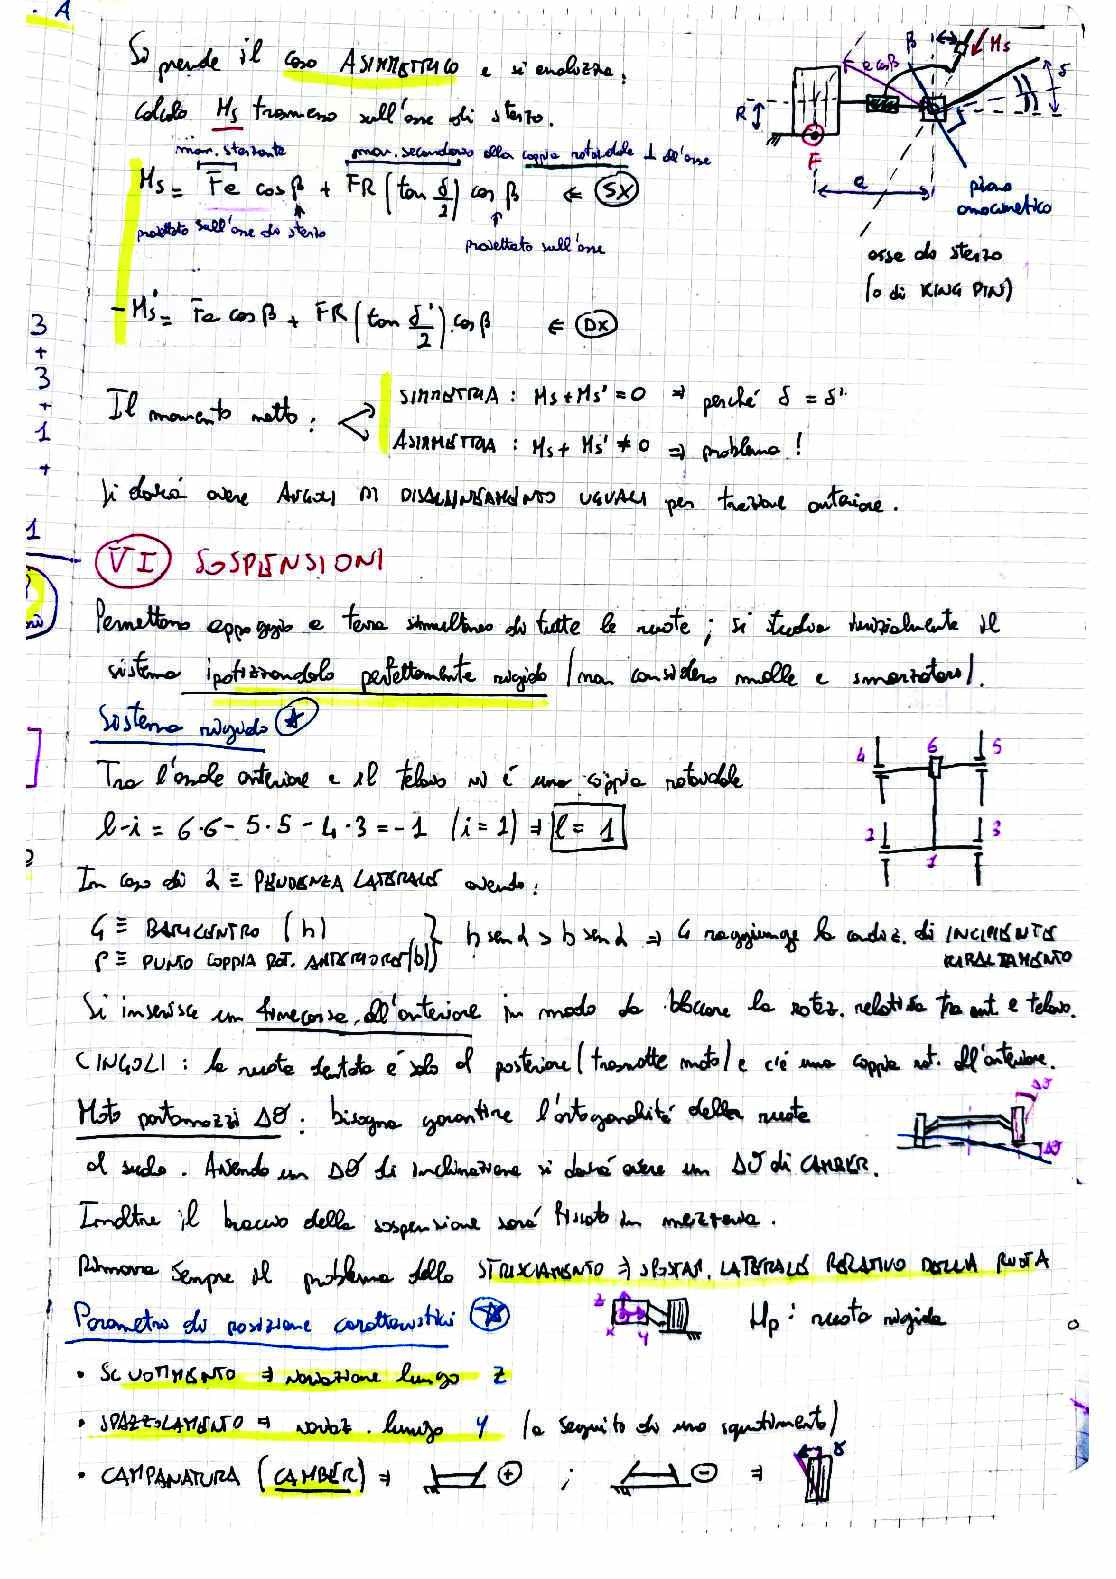 . A
Si prende il caso ASIMMETRICO e si analizza,
calcolo Ms trasmesso sull'asse di sterzo.
mom. sterzante mom. secondario alla coppia rotoidale ⊥ all'asse
Ms = Fe cos β + FR (tan δ/2) cos β ⇐ SX
proiettato sull'asse di sterzo
proiettato sull'asse
- Ms' = Fe cos β + FR (tan δ'/2) cos β ⇐ DX
e
β
Ms
e cos β
δ
R
F
e
piano
omocinetico
asse di sterzo
(o di KING PIN)
3
+
3
+
1
+
1
Il momento netto :
SIMMETRIA : Ms + Ms' = 0 ⇒ perché δ = δ'
ASIMMETRIA : Ms + Ms' ≠ 0 ⇒ problema !
Si dovrà avere ANGOLI DI DISALLINEAMENTO UGUALI per trazione anteriore.
VI SOSPENSIONI
Permettono appoggio a terra simultaneo di tutte le ruote ; si studia inizialmente il
sistema ipotizzandolo perfettamente rigido (non considero molle e smorzatori).
Sistema rigido
Tra l'assale anteriore e il telaio vi é una coppia rotoidale
l-i = 6·6 - 5·5 - 4·3 = -1 (i = 2) ⇒ l = 1
4 6 5
2 1 3
In caso di α ≡ PENDENZA LATERALE avendo :
G ≡ BARICENTRO (h)
P ≡ PUNTO COPPIA ROT. ANTERIORE (b)
h sen α > b sen α ⇒ G raggiunge la condiz. di INCIPIENTE
RIBALTAMENTO
Si inserisce un finecorsa all'anteriore in modo da bloccare la rotaz. relativa tra ant. e telaio.
CINGOLI : la ruota dentata é solo al posteriore (trasmette moto) e c'é una coppia rot. all'anteriore.
Moto portamozzi Δϑ : bisogna garantire l'ortogonalità della ruota
al suolo. Avendo un Δϑ di inclinazione si dovrà avere un Δϑ di CAMBER.
Δϑ
Δϑ
Inoltre il braccio della sospensione sarà fissato in mezzeria.
Rimane sempre il problema dello STRISCIAMENTO ⇒ SPOSTAM. LATERALE RELATIVO DELLA RUOTA
Parametri di posizione caratteristici
z
x
y
Hp : ruota rigida
• SCUOTIMENTO ⇒ variazione lungo z
• SPAZZOLAMENTO ⇒ variaz. lungo y (a seguito di uno scuotimento)
• CAMPANATURA (CAMBER) ⇒ + ; - ⇒ γ